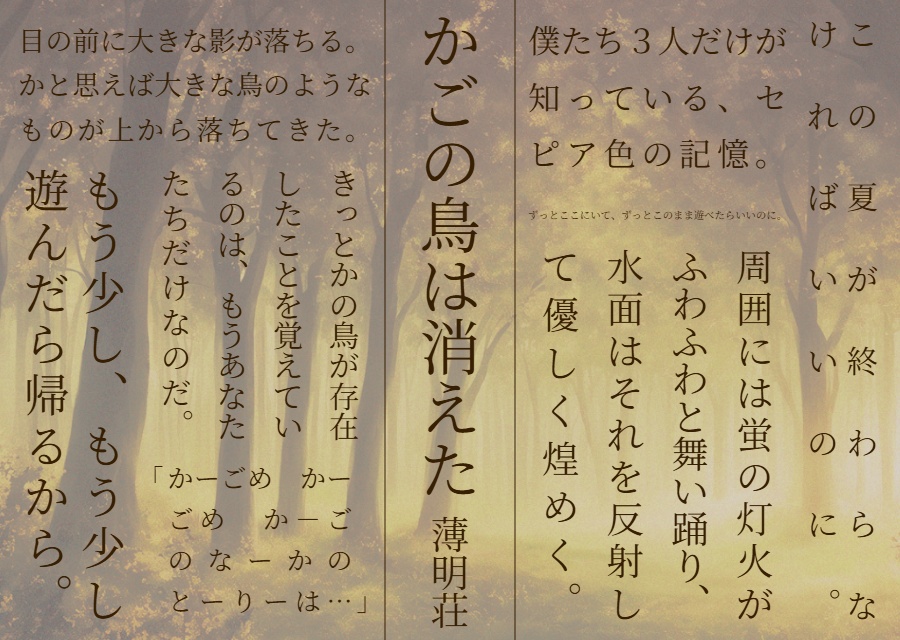 この夏が終わらな
ければいいのに。
僕たち３人だけが
知っている、セ
ピア色の記憶。
ずっとここにいて、ずっとこのまま遊べたらいいのに。
周囲には蛍の灯火が
ふわふわと舞い踊り、
水面はそれを反射し
て優しく煌めく。
かごの鳥は消えた
薄明荘
目の前に大きな影が落ちる。
かと思えば大きな鳥のような
ものが上から落ちてきた。
きっとかの鳥が存在
したことを覚えてい
るのは、もうあなた
たちだけなのだ。
「かーごめ　かー
ごめ　か―ご
のなーかの
とーりーは…」
もう少し、もう少し
遊んだら帰るから。